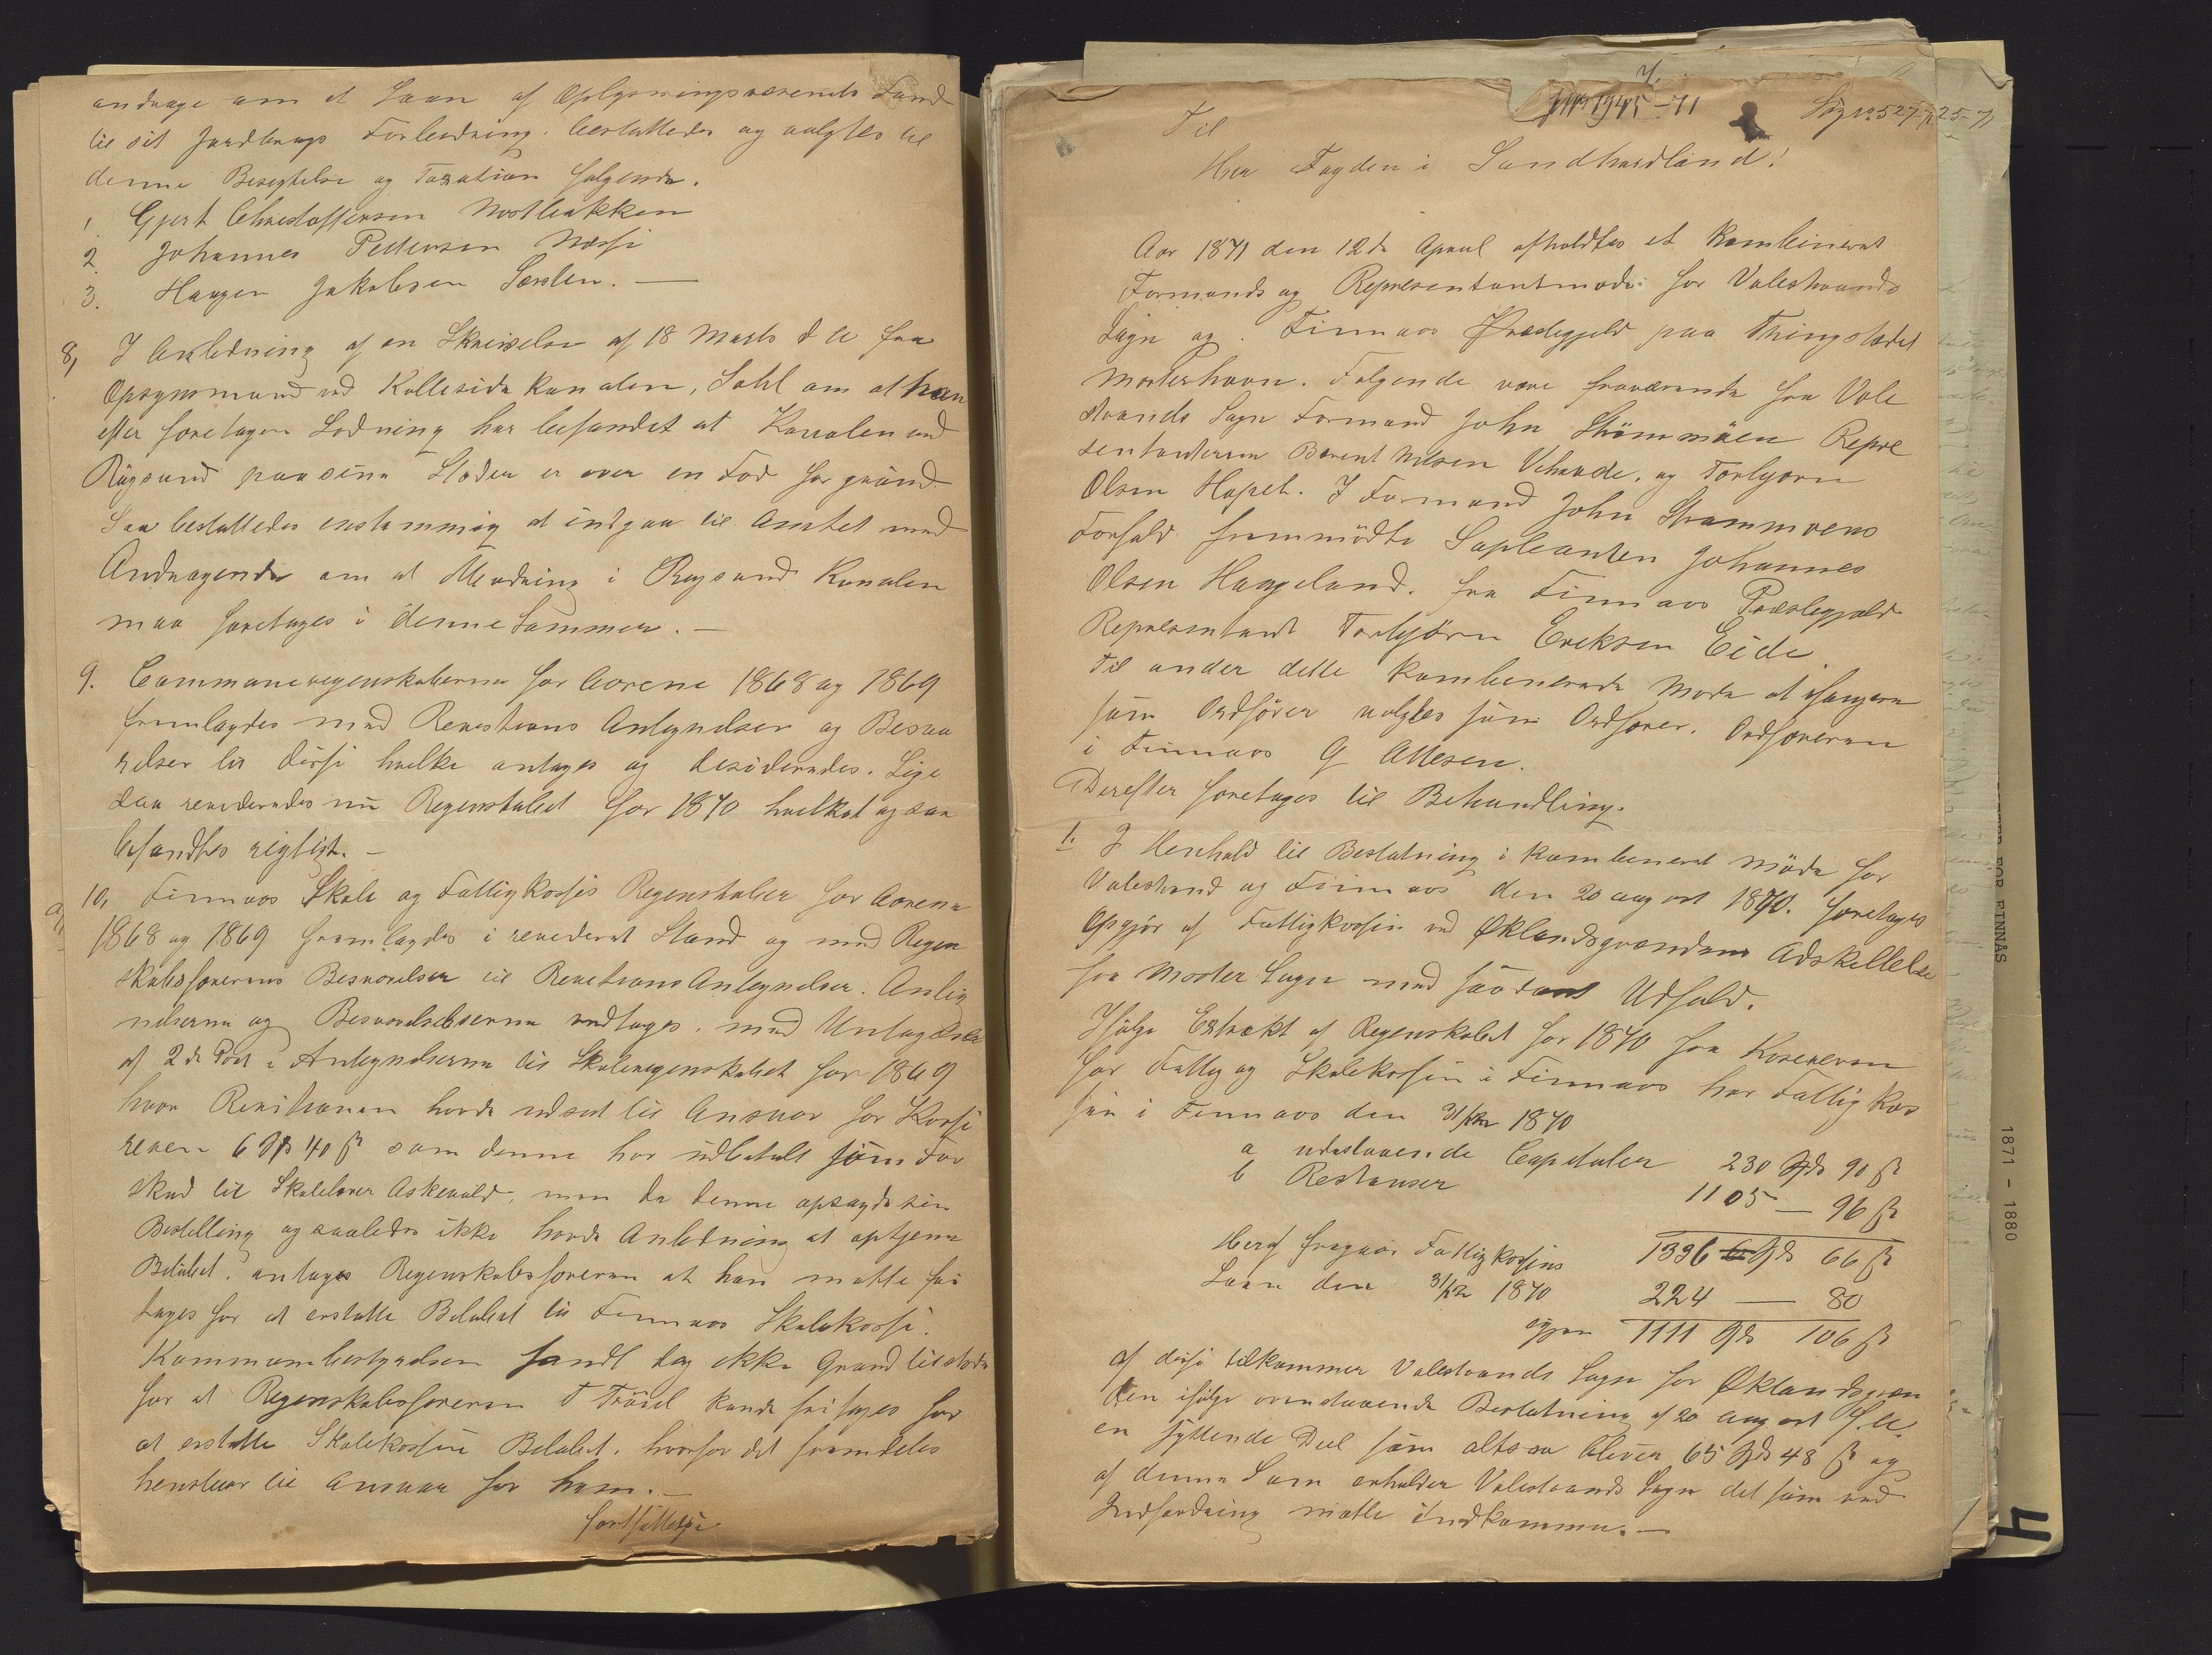 andrage om et Laan af Oplysningsvæsenets Fond
til sit Jordbrugs Forbedring. bestattedes og valgtes til
denne Besigtelse og Taxation følgende.
1 Gjert Christoffersen Nostbakken
2. Johannes Pettersen Næsse
3. Haagen Jakobsen Særslen. —
8, I Anledning af en Skrivelse af 18 Marts d A fra
Opsynsmand ved Kulleseids kanalen, Sahl om at han
efter foretagen Lodning har befundet at Kanalen ved
Røgsund paa sine Stæder er over en Fod for grund
Saa bestattedes enstemmig at indgaa til Amtet med
Andragende om at Mudring i Røgsund Kanalen
maa foretages i denne Sommer. —
9. Communeregnskaberne for Aarene 1868 og 1869
fremlagdes med Revisions Antegnelser og Besva
relser til disse hvilke antages og desideredes. Lige
saa revideredes nu Regnskabet for 1870 hvilket ogsaa
befandtes rigtigt. —
10, Finnaas Skole og Fattigkasses Regnskaber for Aarene
1868 og 1869 fremlagdes i revideret Stand og med Regn
skabsførerens Besvarelser til Revisions Antegnelser. Anteg
nelserne og Besvarelserne vedtages. med Undtagelse
af 2de Post i Antegnelserne til Skoleregnskabet for 1869
hvor Revisionen havde udsat til Ansvar for Kasse
reren 6 Spd 40 ß som denne har udbetalt som For
skud til Skolelærer Askevold, men da denne opsagde sin
Bestilling og saaledes ikke havde Anledning at optjene
Beløbet, antages Regnskabsføreren at han maatte fri
tages for at erstatte Beløbet til Finnaas Skolekasse.
Kommunebestyrelsen fandt dog ikke Grund tilstede
for at Regnskabsføreren T Træel kunde fritages for
at erstatte Skolekassen Beløbet. hvorfor det fremdeles
henstaar til Ansvar for ham. —
fortsættelse
J№ 1945-71
Til
Her Fogden i Sundhordland!
Aar 1871 den 12te April afholdtes et kombineret
Formands og Representantmøde for Valestrands
Sogn og Finnaas Præstegjeld paa Thingstædet
Mosterhavn. Følgende vare fraværende fra Vale
strands Sogn Formand John Strømmøen Repre
sentanterne Berent Nilsen Vihovde, og Torbjørn
Olsen Hopet. I Formand John Strømmøens
Forfald fremmødte Supleanten Johannes
Olsen Haugeland. fra Finnaas Præstegjeld
Representant Torbjørn Eriksen Eide.
Til under dette kombinerede Møde at fungere
som Ordfører valgtes som Ordfører. Ordføreren
i Finnaas G Attesen.
Derefter foretages til Behandling.
1. I Henhold til Beslutning i kombineret Møde for
Valestrand og Finnaas den 20 august 1870. foretages
Opgjør af Fattigkassen ved Øklandsgrændens Adskillelse
fra Moster Sogn med saadant Udfald.
Ifølge Extrakt af Regnskabet for 1870 fra Kassereren
for Fattig og Skolekassen i Finnaas har Fattigkas
sen i Finnaas den 31/12 1870
a udestaaende Capitaler 230 Spd 90 ß
b Restanser 1105 — 96 ß
1336 Spd 66 ß
Heraf fragaar Fattigkassens
Laan den 31/12 1870 224 — 80
igjen 1111 Spd 106 ß
af disse tilkommer Valestrands Sogn for Øklandsgræn
den ifølge ovenstaaende Beslutning af 20 august f.A.
en syttende Deel som altsaa bliver 65 Spd 48 ß og
af denne Sum erholder Valestrands Sogn det som ved
Indfordring maatte indkomme. —
1871 - 1880
4